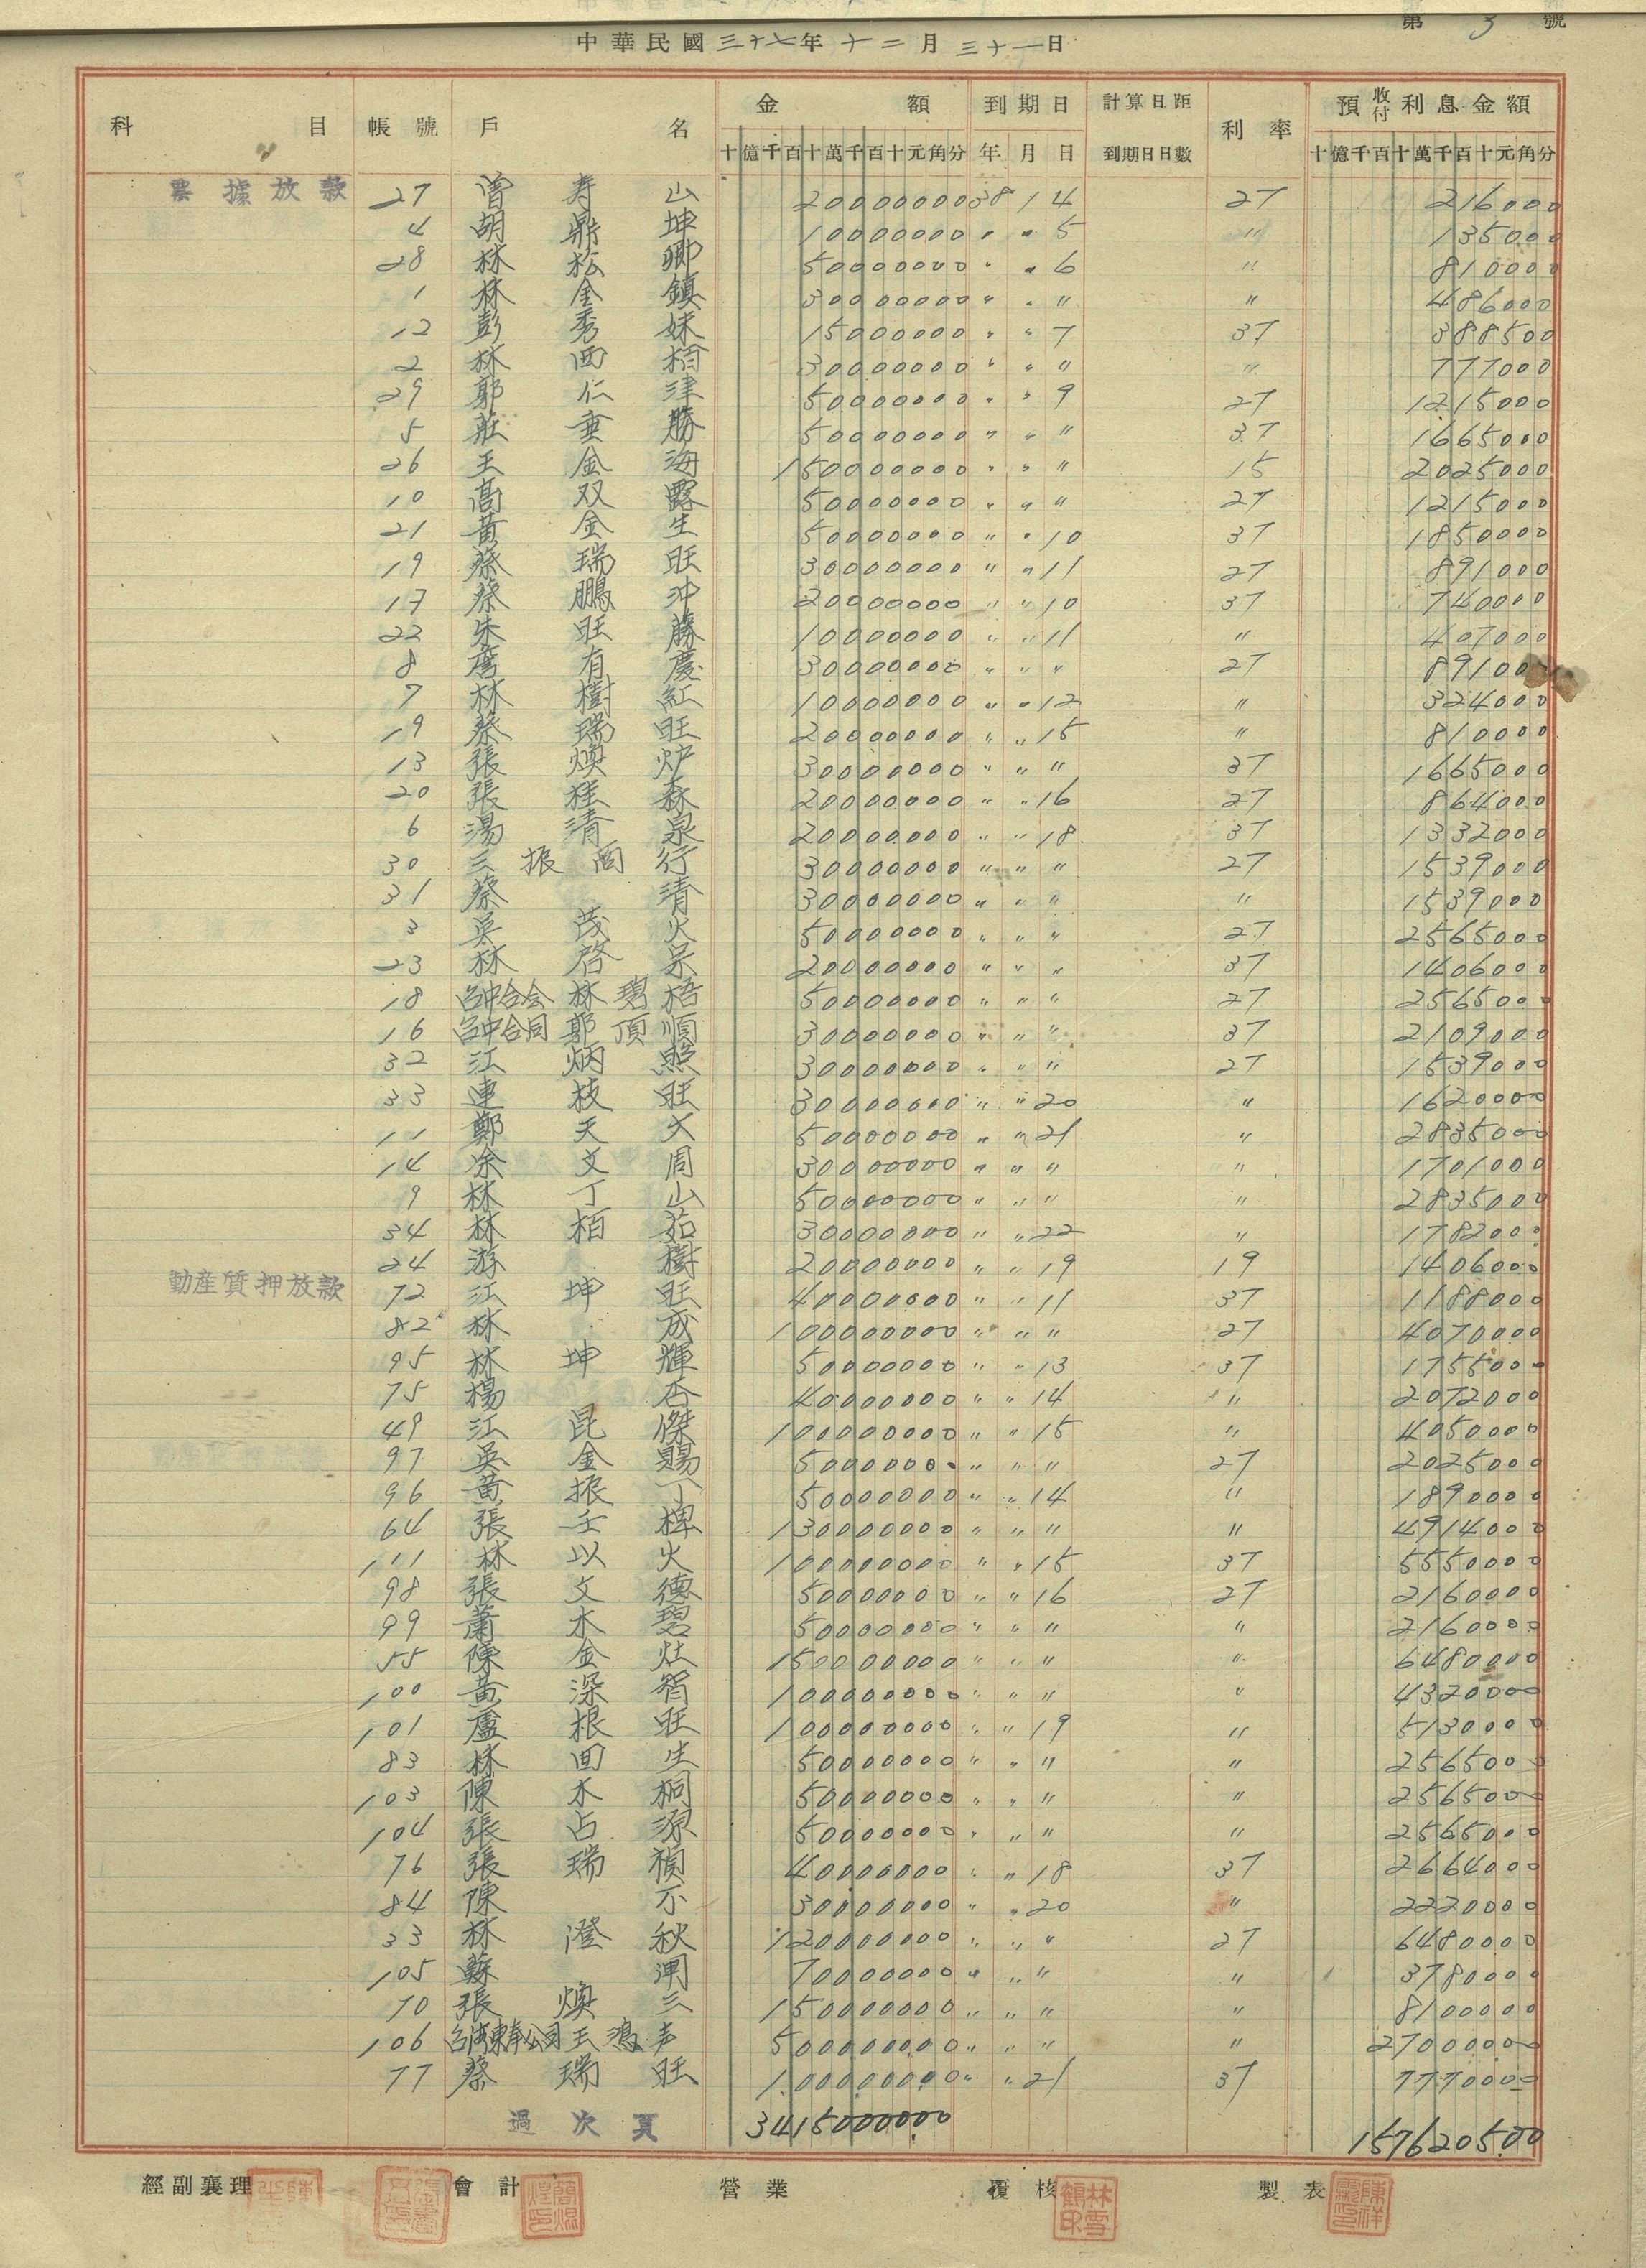 第 3 號
中華民國三十七年十二月三十一日
科目 帳號 戶名 金額 到期日 計算日距到期日日數 利率 預收付利息金額
十億千百十萬千百十元角分 年月日 十億千百十萬千百十元角分
票據放款 27 曾寿山 20000000 38 1 4 27 216000
4 胡鼎坤 10000000 〃 〃 5 〃 135000
28 林松卿 50000000 〃 〃 6 〃 810000
1 林金鎮 30000000 〃 〃 〃 〃 486000
12 彭秀妹 15000000 〃 〃 7 37 388500
2 林西栢 30000000 〃 〃 〃 〃 777000
29 郭仁津 50000000 〃 〃 9 27 1215000
5 莊垂勝 50000000 〃 〃 〃 37 1665000
26 王金海 150000000 〃 〃 〃 15 2025000
10 高双露 50000000 〃 〃 〃 27 1215000
21 黃金生 50000000 〃 〃 10 37 1850000
19 蔡瑞旺 30000000 〃 〃 11 27 891000
17 蔡鵬沖 20000000 〃 〃 10 37 740000
22 朱旺藤 10000000 〃 〃 11 〃 407000
8 有慶 30000000 〃 〃 〃 27 891000
7 林樹紅 10000000 〃 〃 12 〃 324000
19 蔡瑞旺 20000000 〃 〃 15 〃 810000
13 張煥炉 30000000 〃 〃 〃 37 1665000
20 張桂森 20000000 〃 〃 16 27 864000
6 湯清泉 20000000 〃 〃 18 37 1332000
30 三振商行 30000000 〃 〃 〃 27 1539000
31 蔡清 30000000 〃 〃 〃 〃 1539000
3 吳茂火 50000000 〃 〃 〃 27 2565000
23 林啓呆 20000000 〃 〃 〃 37 1406000
18 台中合会 林碧梧 50000000 〃 〃 〃 27 2565000
16 台中合同 郭頂順 30000000 〃 〃 〃 37 2109000
32 江炳照 30000000 〃 〃 〃 27 1539000
33 連枝旺 30000000 〃 〃 20 〃 1620000
11 鄭天文 50000000 〃 〃 21 〃 2835000
14 凃文周 30000000 〃 〃 〃 〃 1701000
9 林丁山 50000000 〃 〃 〃 〃 2835000
34 林栢茹 30000000 〃 〃 22 〃 1782000
24 游樹 20000000 〃 〃 19 19 1406000
動產質押放款 72 江坤旺 40000000 〃 〃 11 37 1188000
82 林成 100000000 〃 〃 〃 27 4070000
95 林坤輝 50000000 〃 〃 13 37 1755000
75 楊杏 40000000 〃 〃 14 〃 2072000
49 江昆傑 100000000 〃 〃 15 〃 4050000
97 吳金賜 50000000 〃 〃 〃 27 2025000
96 黃振丁 50000000 〃 〃 14 〃 1890000
64 張壬樺 130000000 〃 〃 〃 〃 4914000
111 林以火 100000000 〃 〃 15 37 5550000
98 張文德 50000000 〃 〃 16 27 2160000
99 蕭水碧 50000000 〃 〃 〃 〃 2160000
55 陳金灶 150000000 〃 〃 〃 〃 6480000
100 黃深智 100000000 〃 〃 〃 〃 4320000
101 盧根旺 100000000 〃 〃 19 〃 5130000
83 林回生 50000000 〃 〃 〃 〃 2565000
103 陳木桐 50000000 〃 〃 〃 〃 2565000
104 張占源 50000000 〃 〃 〃 〃 2565000
76 張瑞禎 40000000 〃 〃 18 37 2664000
84 陳不 30000000 〃 〃 20 〃 2220000
33 林澄秋 120000000 〃 〃 〃 27 6480000
105 蘇 70000000 〃 〃 〃 〃 3780000
70 張煥三 150000000 〃 〃 〃 〃 8100000
106 公司 王鴻声 500000000 〃 〃 〃 〃 27000000
77 蔡瑞旺 100000000 〃 〃 21 37 7770000
過次頁 3415000000 157620500
經副襄理 會計 營業 覆核 林雪鶴印 製表